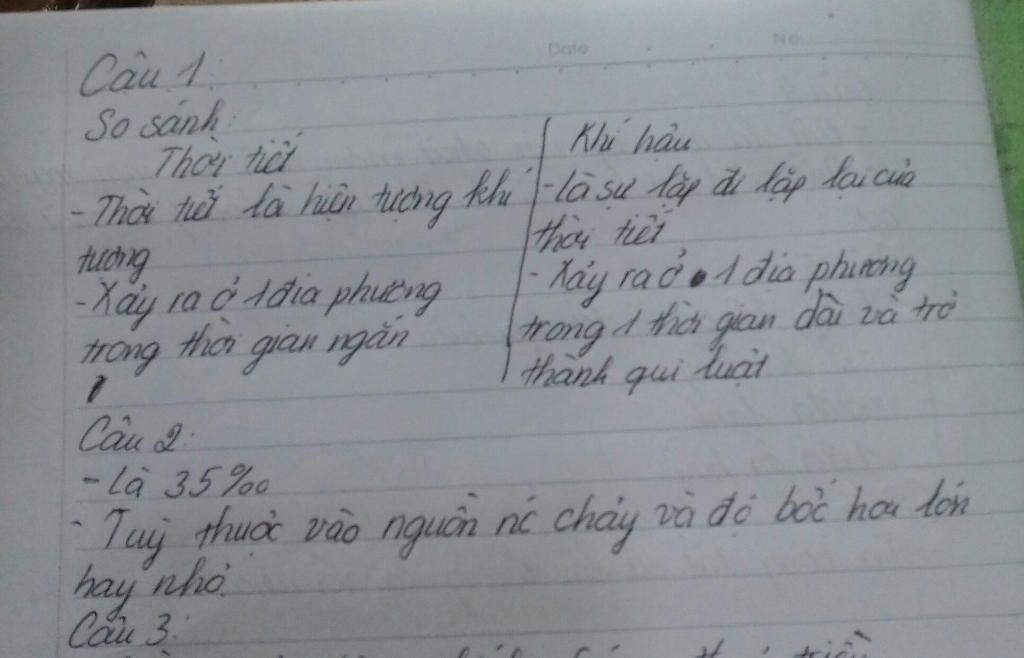 Date No
Câu 1:
So sánh:
Thời tiết
- Thời tiết là hiện tượng khí
tượng
- Xảy ra ở 1 địa phương
trong thời gian ngắn
Khí hậu
- là sự lặp đi lặp lại của
thời tiết
- Xảy ra ở 1 địa phương
trong 1 thời gian dài và trở
thành qui luật
Câu 2:
- là 35‰
- Tuỳ thuộc vào nguồn nc chảy và độ bốc hơi lớn
hay nhỏ.
Câu 3:
triều